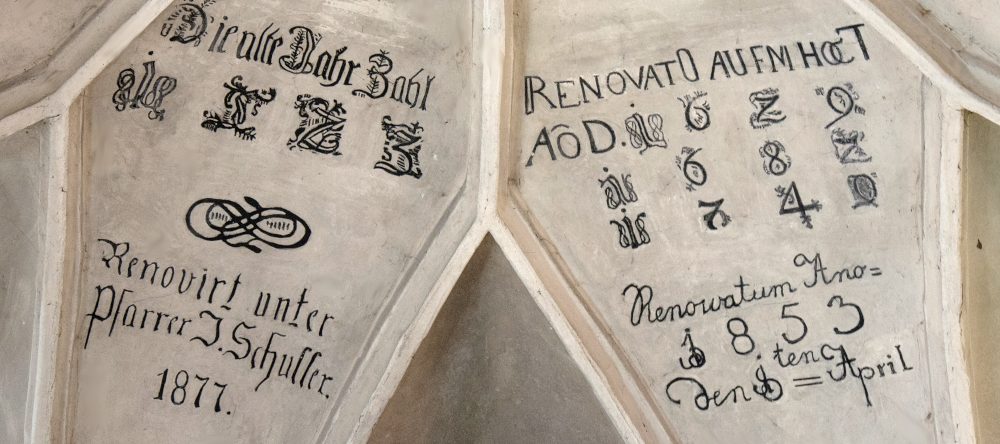 Die alte Jahr Zahl
Renovirt unter
Pfarrer J. Schuller.
1877.
RENOVATO AUFM HOCT
AÕ D. 1 6 Z 9
1 6 8 Z
1 7 4 0
Renowatum Ano=
1 8 5 3
den 1ten = April